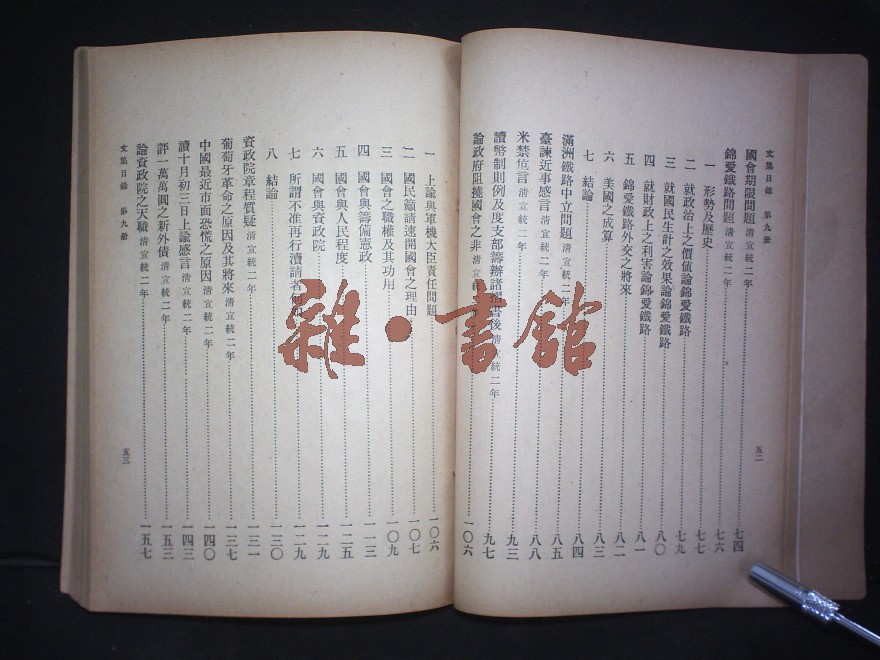 文集目錄 第九册
五二
國會期限問題 清宣統二年 七四
錦愛鐵路問題 清宣統二年 七六
一 形勢及歷史 七七
二 就政治上之價値論錦愛鐵路 七九
三 就國民生計之效果論錦愛鐵路 八〇
四 就財政上之利害論錦愛鐵路 八一
五 錦愛鐵路外交之將來 八二
六 美國之成算 八三
七 結論 八四
滿洲鐵路中立問題 清宣統二年 八五
臺諫近事感言 清宣統二年 八八
米禁危言 清宣統二年 九三
讀幣制則例及度支部籌辦諸摺書後 清宣統二年 九七
論政府阻撓國會之非 清宣統二年 一〇六
一 上諭與軍機大臣責任問題 一〇六
二 國民籲請速開國會之理由 一〇七
三 國會之職權及其功用 一〇九
四 國會與籌備憲政 一一三
五 國會與人民程度 一二五
六 國會與資政院 一二九
七 所謂不准再行瀆請者何如 一二九
八 結論 一三〇
資政院章程質疑 清宣統二年 一三一
葡萄牙革命之原因及其將來 清宣統二年 一三七
中國最近市面恐慌之原因 清宣統二年 一四〇
讀十月初三日上諭感言 清宣統二年 一四三
評一萬萬圓之新外債 清宣統二年 一五三
論資政院之天職 清宣統二年 一五七
文集目錄 第九册
五三
雜·書館